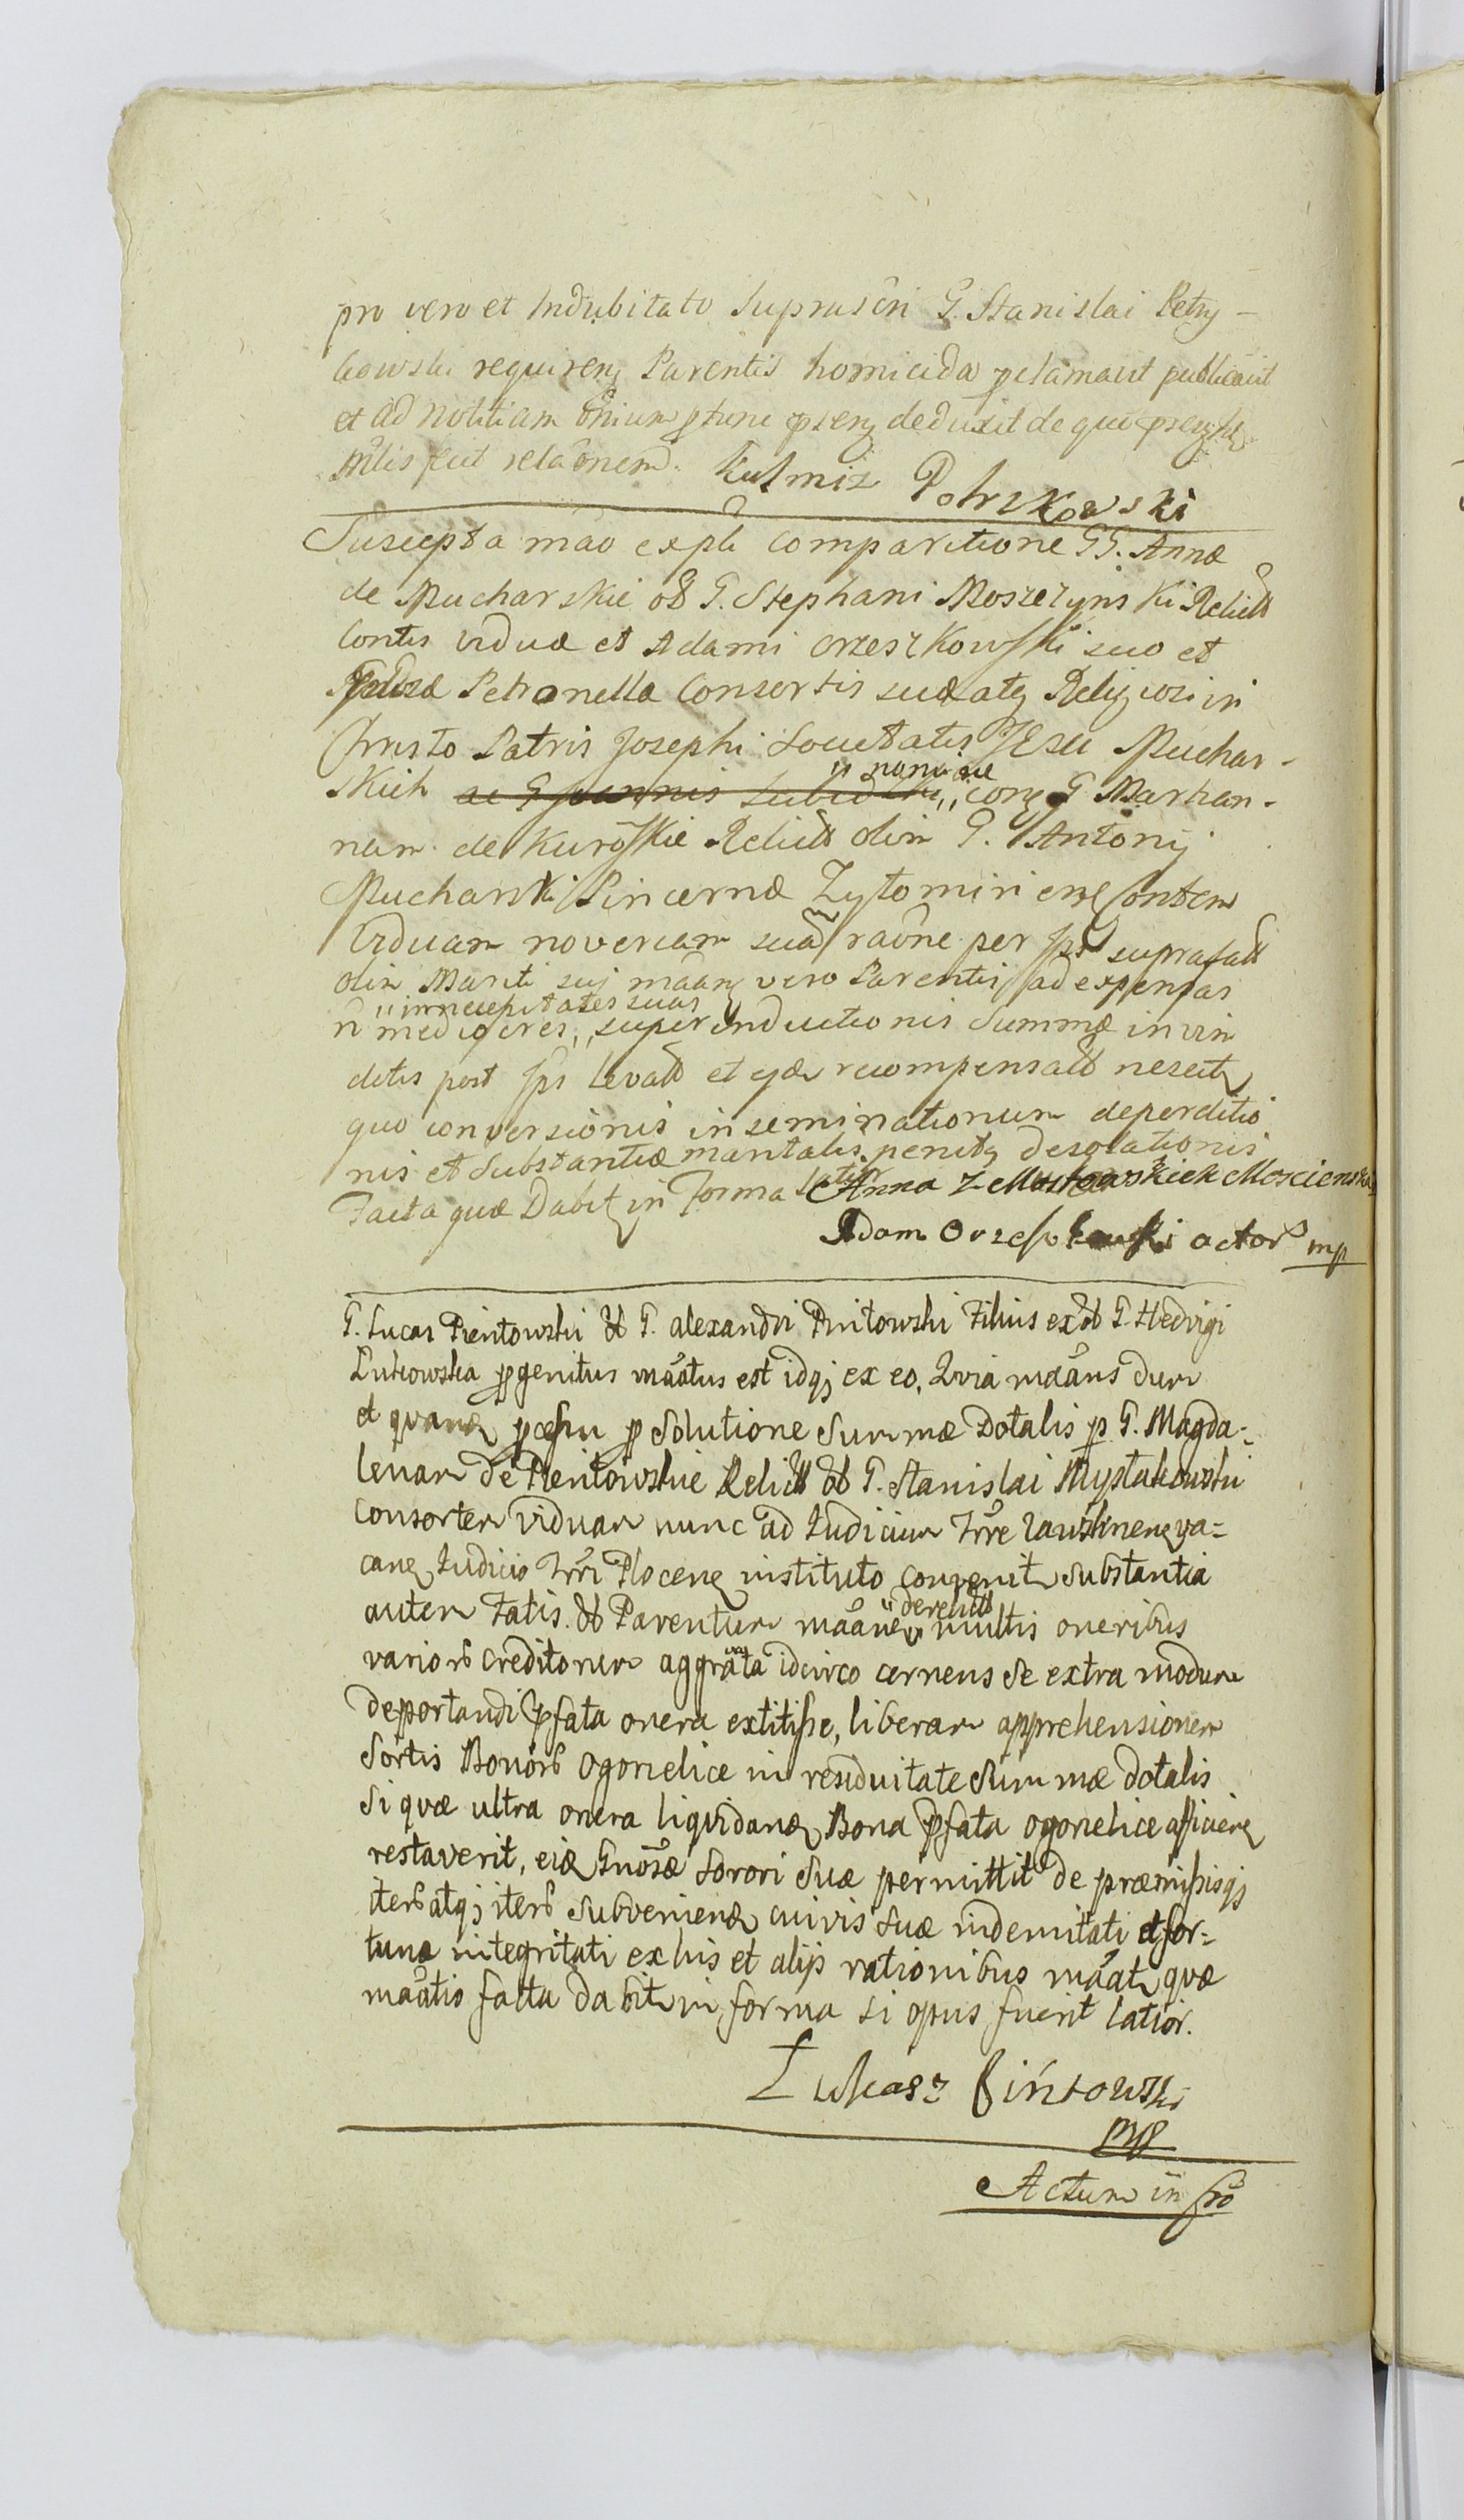 pro vero et Indubitato Suprascri G. Stanislai Petry-
kowski requirenᵱ Parentis homicida pclamavit publicavit
et ad notitiam oniumᵱ tunc pᵱsenᵱ deduxit de quo pᵱsenᵱ
Mlis fecit relaonem. Kazmiz Potrzkowski
Suscepta mao expli comparitione GG. Annæ
de Mucharskie olt G. Stephani Moszczynski Relictt
Contis viduæ et Adami Orzeszkowski suo et
Petronellæ Consortis suæ atq Religiosi in
Christo Patris Josephi Societatis JEsu Muchar-
skich ac G Joannis con G Marian-
nam de Kuroskie Relictt olim G. Antonij
Mucharski Pincernæ Zytomirien Contem
Viduam novercam suam raone per ips suprafatt
olim Mariti sui maan vero Parentis ad expensas
n mediocres,, in necessitates suas,, superinductionis Summæ in vim
dotis post ips levatt et ejdem recompensatt nec et
quo conversionis inseminationum deperditio
nis et Substantiæ maritalis penitq desolationis
Facta quæ Dabit in Forma latior Anna z Mucharskich Moscienska
Adam Orzeszkowski actor mp
G. Lucas Pientowski olt G. Alexandri Pintowski Filius ex olt G. Hedvigi
Lutkowska pgenitus maatus est idqj ex eo, Qvia maans dum
et quanq pcessu p Solutione Summæ Dotalis p G. Magda=
lenam de Pientowskie Relictt olt G. Stanislai Mystkowski
Consortem viduam nunc ad Iudicium Trre Zawskrnen va=
can Iudicio Trri Plocen instituto convenit, Substantia
autem Fatis. olt Parentum maanem derelictt multis oneribus
variorb creditorum aggravata idcirco cernens se extra modum
deportandi pfata onera extitisse, liberam apprehensionem
Sortis Bonorb Ogonelice in residuitate Summæ dotalis
Si quæ ultra onera liqvidanᵱ Bona pfata Ogonelice afficien
restaverit, eidæ Gnosæ Sorori Suæ permittit de præmissisqj
iterb atqj iterb Subveniend cuivis suæ indemnitati et for=
tunæ integritati ex his et alijs rationibus maat, quæ
maatio facta dabit in forma si opus fuerit latior.
Łukasz Pintowski
mp
Actum in fro